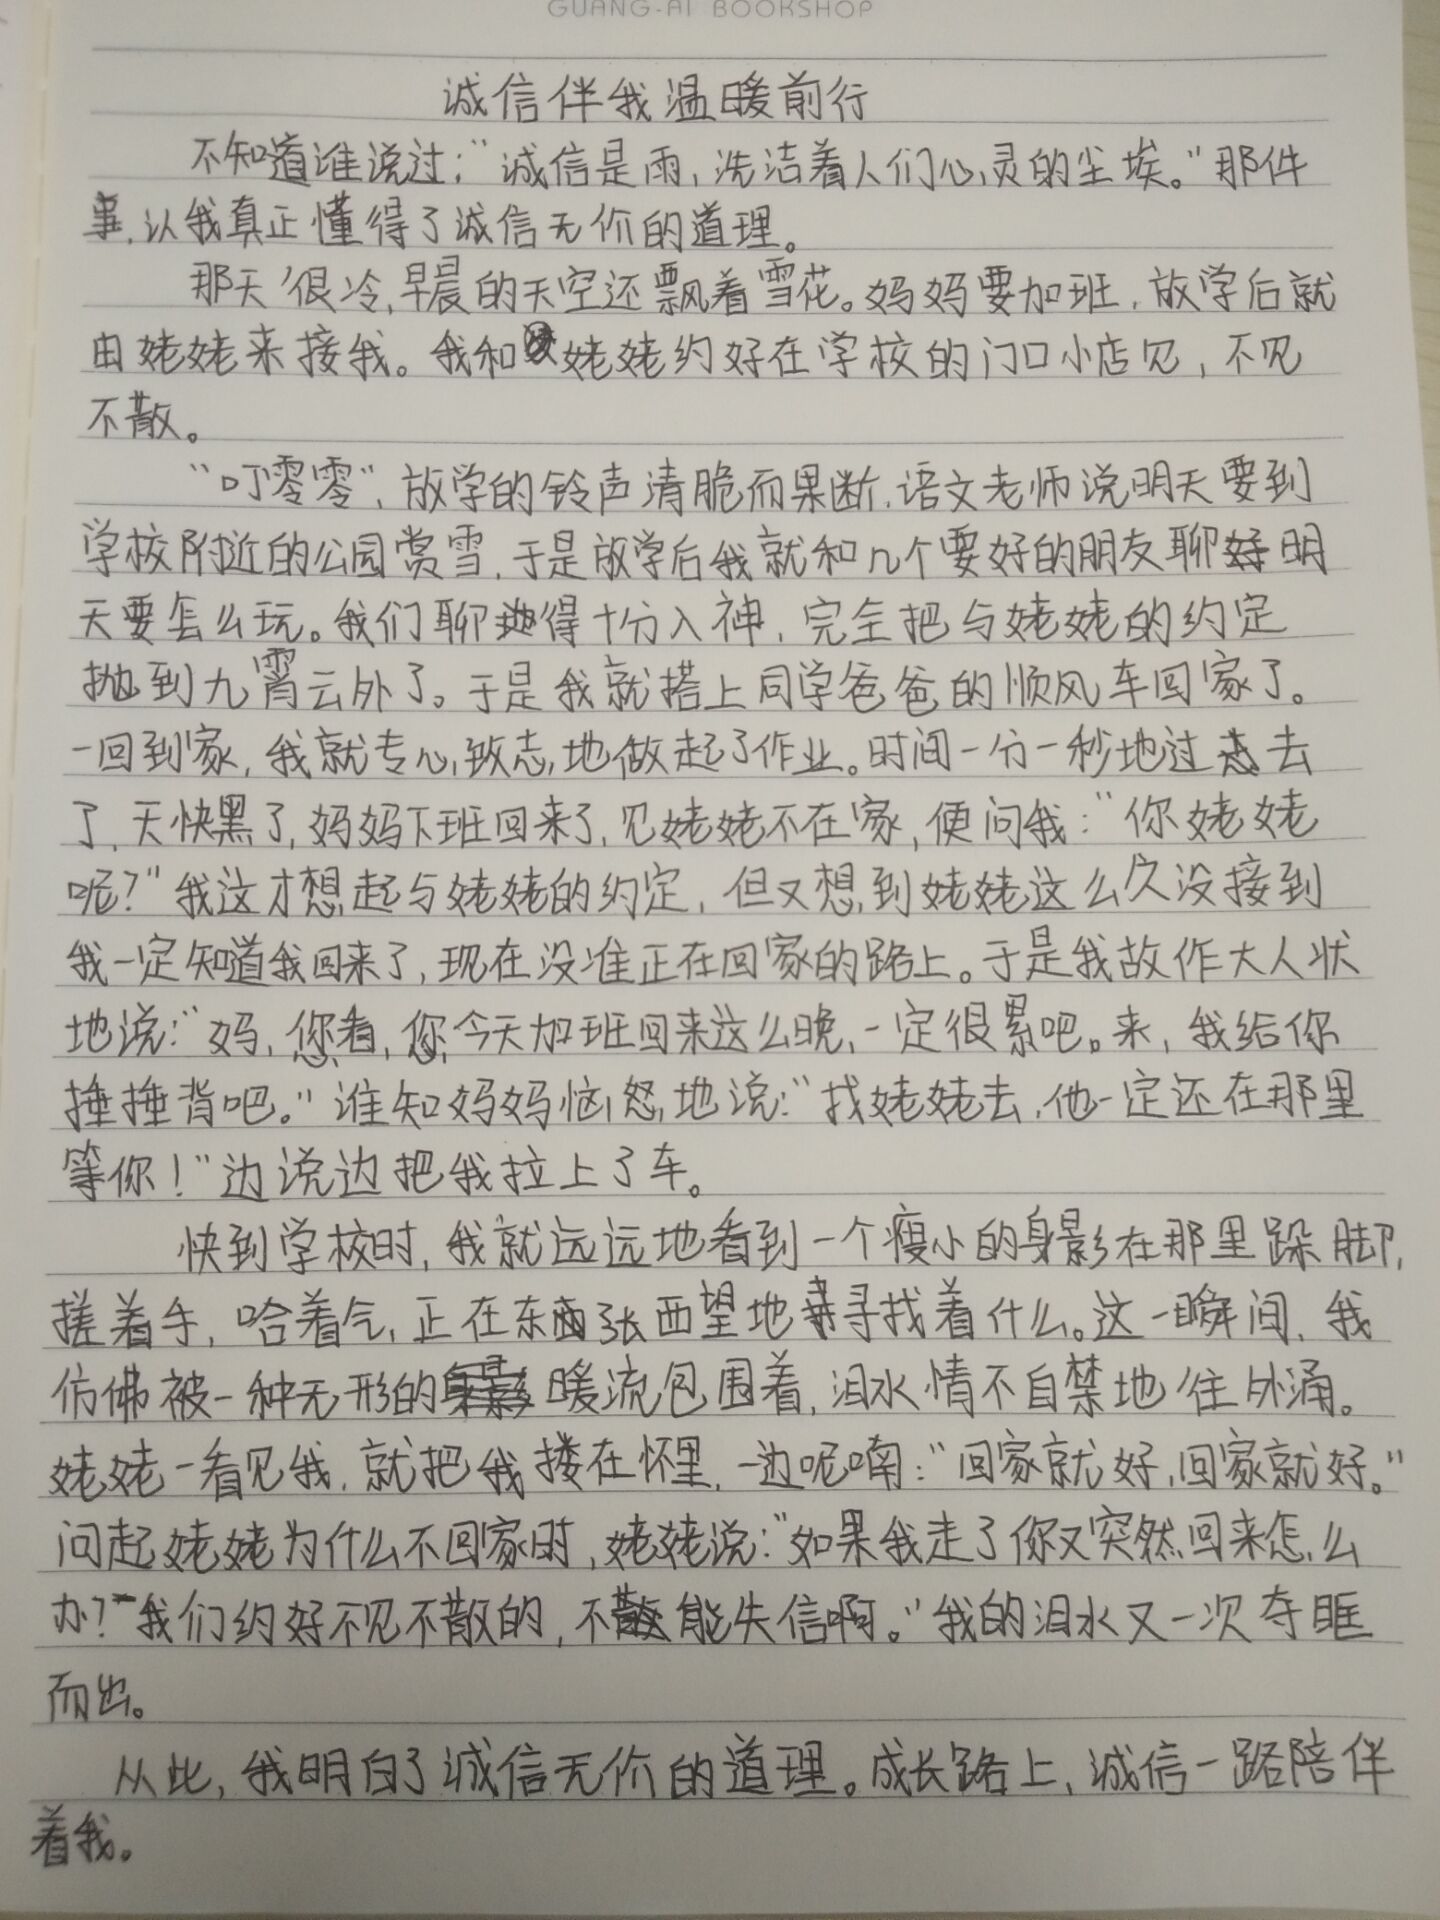 GUANG-AI BOOKSHOP
诚信伴我温暖前行
不知道谁说过:“诚信是雨,洗洁着人们心灵的尘埃。”那件
事,认我真正懂得了诚信无价的道理。
那天很冷,早晨的天空还飘着雪花。妈妈要加班,放学后就
由姥姥来接我。我和姥姥约好在学校的门口小店见,不见
不散。
“叮零零”,放学的铃声清脆而果断,语文老师说明天要到
学校附近的公园赏雪,于是放学后我就和几个要好的朋友聊好明
天要怎么玩。我们聊得十分入神,完全把与姥姥的约定
抛到九霄云外了。于是我就搭上同学爸爸的顺风车回家了。
一回到家,我就专心致志地做起了作业。时间一分一秒地过去
了,天快黑了,妈妈下班回来了,见姥姥不在家,便问我:“你姥姥
呢?”我这才想起与姥姥的约定,但又想到姥姥这么久没接到
我一定知道我回来了,现在没准正在回家的路上。于是我故作大人状
地说:“妈,您看,您今天加班回来这么晚,一定很累吧。来,我给你
捶捶背吧。”谁知妈妈恼怒地说:“找姥姥去,他一定还在那里
等你!”边说边把我拉上了车。
快到学校时,我就远远地看到一个瘦小的身影在那里跺脚,
搓着手,哈着气,正在东张西望地寻找着什么。这一瞬间,我
仿佛被一种无形的暖流包围着,泪水情不自禁地往外涌。
姥姥一看见我,就把我搂在怀里,一边呢喃:“回家就好,回家就好。”
问起姥姥为什么不回家时,姥姥说:“如果我走了你又突然回来怎么
办?我们约好不见不散的,不能失信啊。”我的泪水又一次夺眶
而出。
从此,我明白了诚信无价的道理。成长路上,诚信一路陪伴
着我。